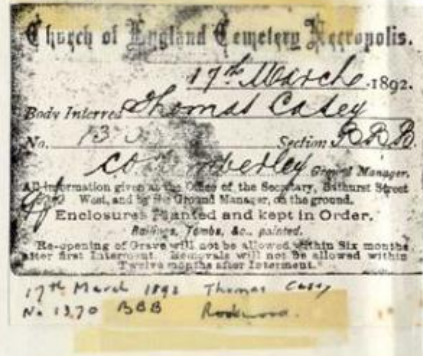 Church of England Cemetery Necropolis.
17th March 1892.
Body Interred Thomas Casey
No. 13 Section BBB
Ground Manager.
All information given at the Office of the Secretary, Bathurst Street
West, and by the Ground Manager, on the ground.
Enclosures Planted and kept in Order.
Railings, Tombs, &c., painted.
Re-opening of Grave will not be allowed within Six months
after first Interment. Removals will not be allowed within
Twelve months after Interment.
17th March 1892 Thomas Casey
No 1370 BBB Rookwood.